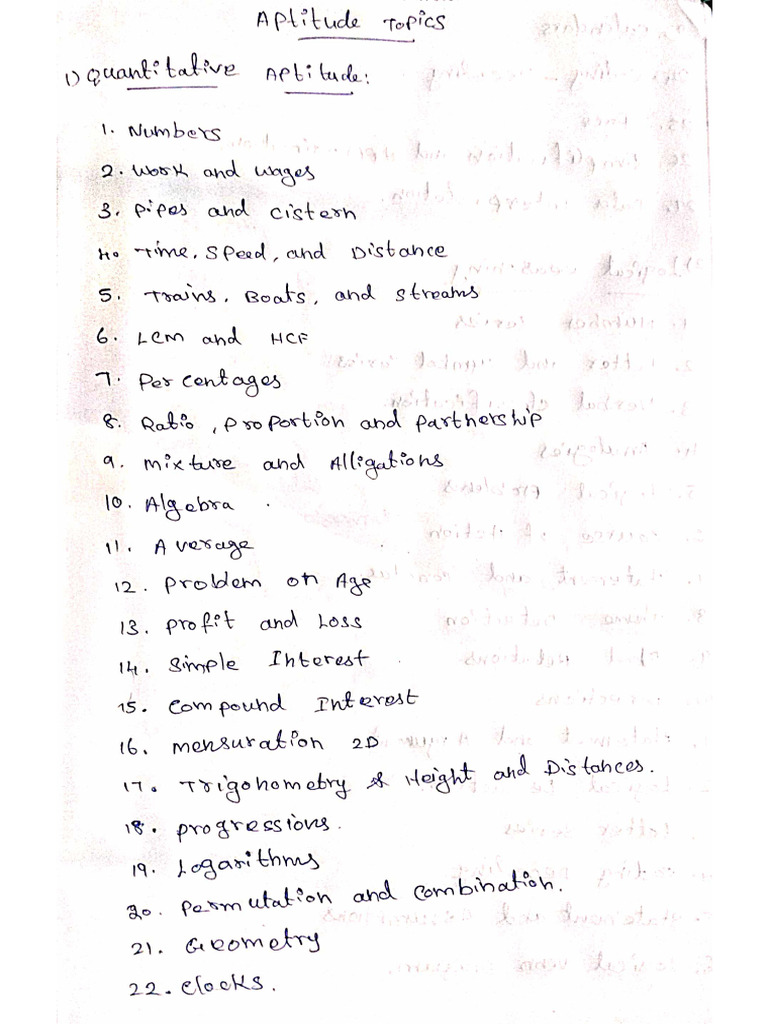 Aptitude Topics
1) Quantitative Aptitude:
1. Numbers
2. Work and Wages
3. Pipes and Cistern
4. Time, Speed, and Distance
5. Trains, Boats, and Streams
6. LCM and HCF
7. Percentages
8. Ratio, Proportion and Partnership
9. Mixture and Alligations
10. Algebra
11. Average
12. Problem on Age
13. Profit and Loss
14. Simple Interest
15. Compound Interest
16. Mensuration 2D
17. Trigonometry & Height and Distances.
18. Progressions.
19. Logarithms
20. Permutation and Combination.
21. Geometry
22. Clocks.